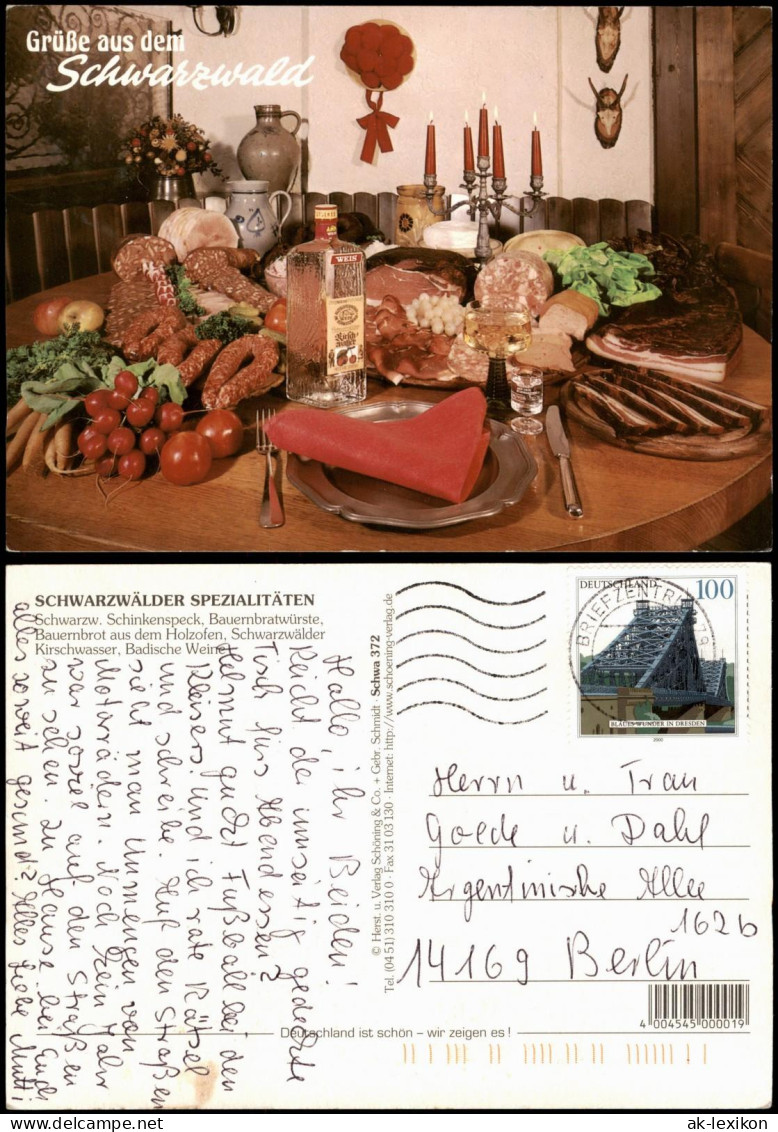 Grüße aus dem
Schwarzwald
WEIS
Kirsch
wasser
SCHWARZWÄLDER SPEZIALITÄTEN
Schwarzw. Schinkenspeck, Bauernbratwürste,
Bauernbrot aus dem Holzofen, Schwarzwälder
Kirschwasser, Badische Weine
Hallo, ihr Beiden!
Reicht der umseitig gedeckte
Tisch fürs Abendessen?
Helmut guckt Fußball bei den
Kleisers und ich rate Rätsel
und schreibe. Auf den Straßen
sieht man Unmengen von
Motorrädern. Noch kein Jahr
war soviel auf den Straßen
zu sehen. Zu Hause bei Euch
alles soweit gesund? Alles Liebe Mutti
© Herst. u. Verlag Schöning & Co. + Gebr. Schmidt · Schwa 372
Tel. (04 51) 310 310 0 · Fax 31 03 130 · Internet: http://www.schoening-verlag.de
DEUTSCHLAND 100
BRIEFZENTRUM
BLAUES WUNDER IN DRESDEN
2000
Herrn u. Frau
Goede u. Dahl
Argentinische Allee
162b
14169 Berlin
4 004545 000019
Deutschland ist schön – wir zeigen es!
www.ak-ansichtskarten.de
ak-lexikon